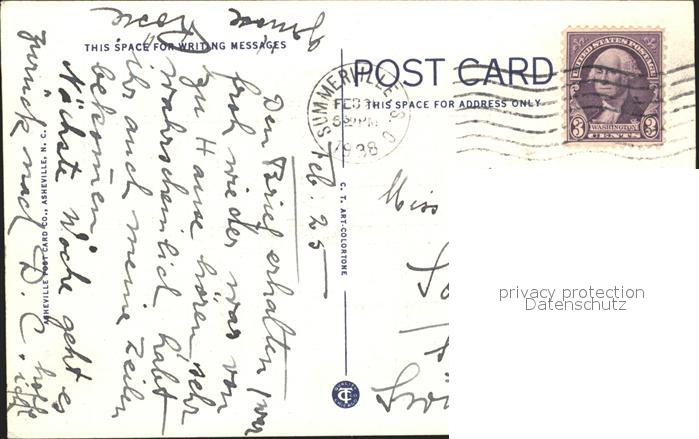 THIS SPACE FOR WRITING MESSAGES
POST CARD
THIS SPACE FOR ADDRESS ONLY
SUMMERVILLE S.C.
FEB
PM
1938
UNITED STATES POSTAGE
3 WASHINGTON 3
CENTS
Feb. 25
Den Brief erhalten, war
froh wieder was von
zu Hause hören, sehr
wahrscheinlich habt
ihr auch meine Zeilen
bekommen.
Nächste Woche geht es
zurück nach D.C.
Miss
ASHEVILLE POST CARD CO., ASHEVILLE, N. C.
C. T. ART-COLORTONE
privacy protection
Datenschutz